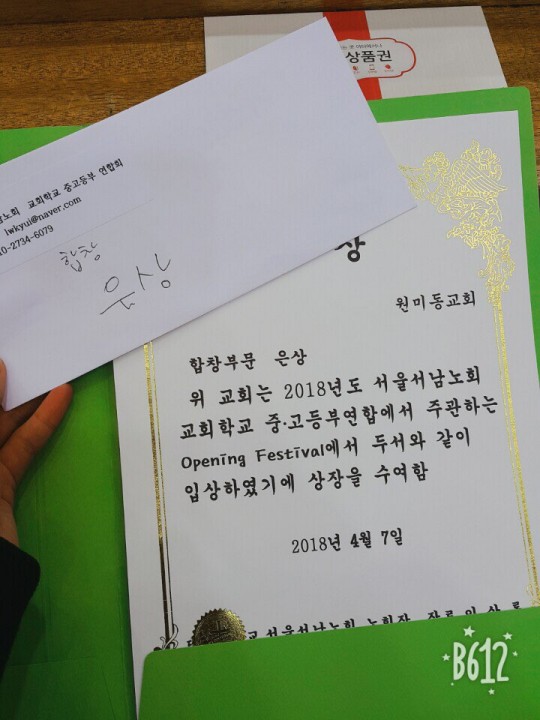 상품권
남노회 교회학교 중고등부 연합회
lwkyui@naver.com
0-2734-6079
합창
은상
상
원미동교회
합창부문 은상
위 교회는 2018년도 서울서남노회
교회학교 중·고등부연합에서 주관하는
Opening Festival에서 두서와 같이
입상하였기에 상장을 수여함
2018년 4월 7일
서울서남노회 노회장 장로
B612